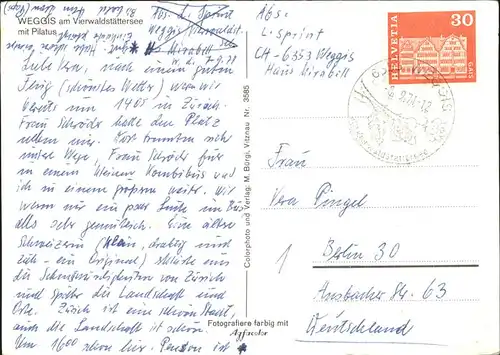 WEGGIS am Vierwaldstättersee
mit Pilatus
Abs. L. Sprint
Weggis
Mirabell
7.9.78
Liebe Vera, nach einem guten
Flug (schönstes Wetter) waren wir
bereits um 1405 in Zürich.
Frau Schröder hatte den Platz
neben mir. Dort trennten sich
unsere Wege, Frau Schröder fuhr
in einem kleinen Kombibus und
ich in einem grösseren weiter. Wir
waren nur ein paar Leute im Bus
alles sehr gemütlich. Eine ältere
Schweizerin (klein, drahtig und
zäh - ein Original) erklärte uns
die Sehenswürdigkeiten von Zürich
und später die Landschaft und
Orte. Zürich ist eine schöne Stadt,
auch die Landschaft ist schön.
Um 1600 hier. Pension ist
Colorphoto und Verlag: M. Bürgi, Vitznau Nr. 3585
Fotografiere farbig mit
Agfacolor
Abs:
L. Sprint
CH-6353 Weggis
Haus Mirabell
HELVETIA
30
6353 WEGGIS
Frau
Vera Pingel
1
Berlin 30
Ansbacher Str. 63
Deutschland